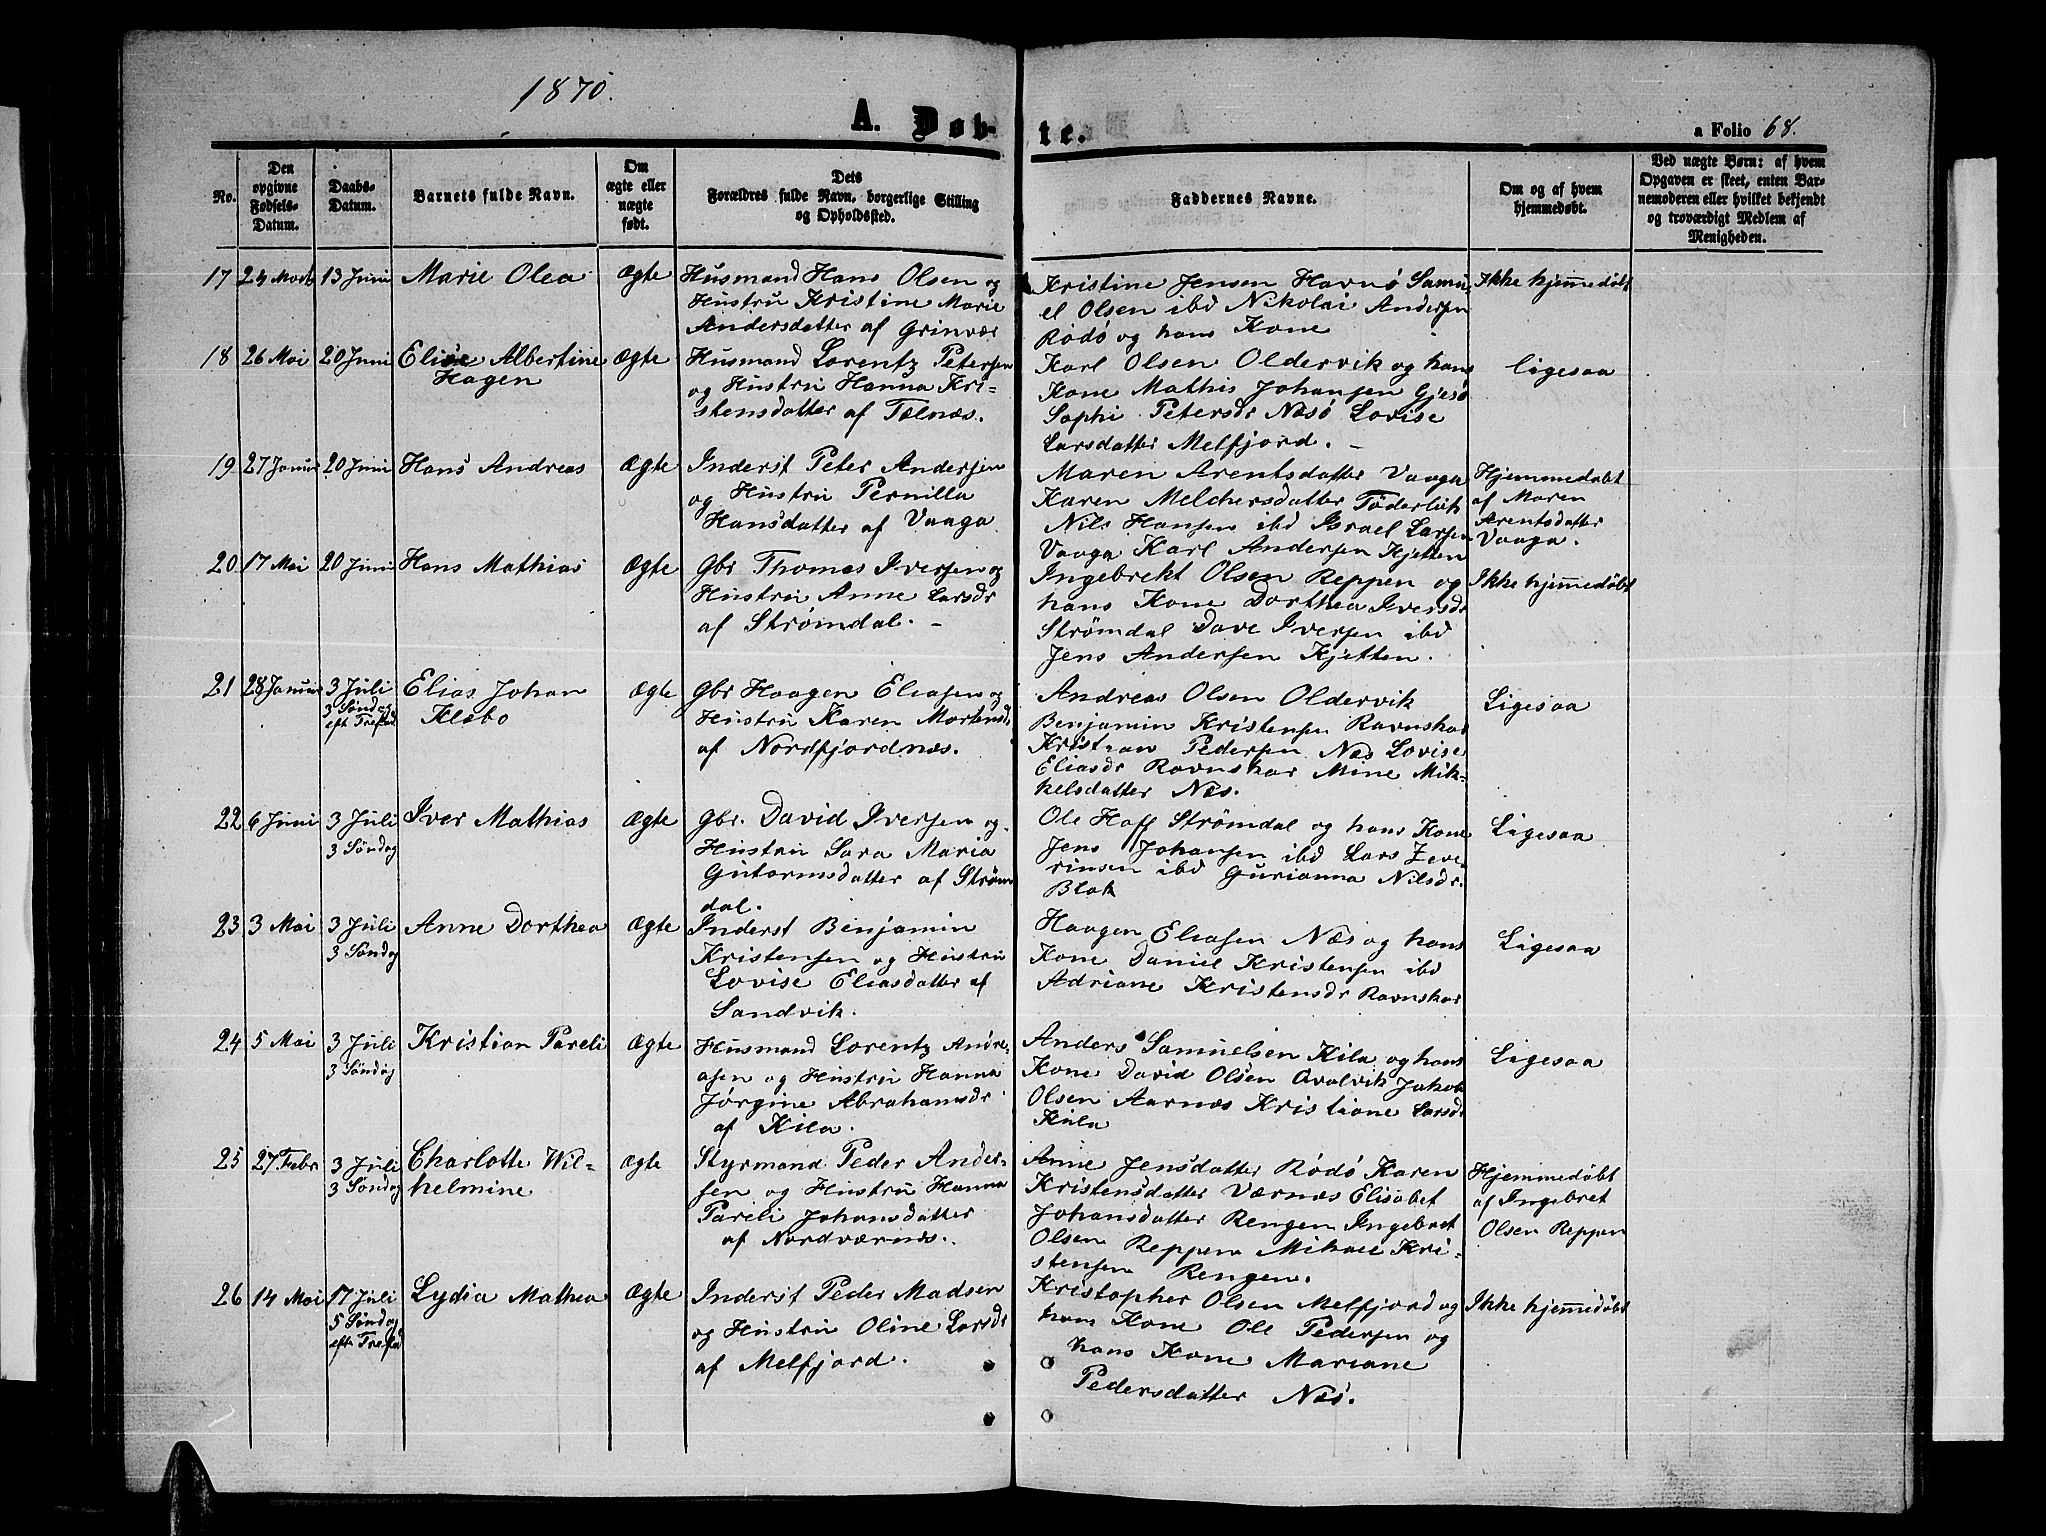 1870.
A. Døb-
te.
a Folio 68.
No.
Den
opgivne
Fødsels-
Datum.
Daabs-
Datum.
Barnets fulde Navn.
Om
ægte eller
uægte
født.
Dets
Forældres fulde Navn, borgerlige Stilling
og Opholdssted.
Faddernes Navne.
Om og af hvem
hjemmedøbt.
Ved uægte Børn: af hvem
Opgaven er skeet, enten Bar-
nemoderen eller hvilket bekjendt
og troværdigt Medlem af
Menigheden.
17
13 Juni
Marie Olea
Ægte
Husmand Hans Olsen og
Hustru Kristine Marie
Andersdatter af Grinvær
Kristine Jensen Havnø Samu-
el Olsen ibd Nikolai Andersen
Rødø og hans Kone
Ikke hjemmedøbt
18
26 Mai
20 Juni
Elise Albertine
Hagen
Ægte
Husmand Lorentz Petersen
og Hustru Hanna Kri-
stensdatter af Telnæs.
Karl Olsen Oldervik og hans
Kone Mathis Johansen Gjesø
Sophi Petersdr Næsø Lovise
Larsdatter Melfjord. -
Ligesaa
19
27 Januar
20 Juni
Hans Andreas
Ægte
Inderst Peter Andersen
og Hustru Pernilla
Hansdatter af Vaaga
Maren Arentsdatter Vaaga
Karen Melchersdatter
Nils Hansen ibd Israel Larsen
Vaaga Karl Andersen Kjetten
Hjemmedøbt
af Maren
Arentsdatter
Vaaga.
20
17 Mai
20 Juni
Hans Mathias
Ægte
Gbr Thomas Iversen og
Hustru Anne Larsdr
af Strømdal. -
Ingebrekt Olsen Reppen og
hans Kone Dorthea Iversdr
Strømdal Dave Iversen ibd
Jens Andersen Kjetten.
Ikke hjemmedøbt
21
28 Januar
3 Juli
3 Søndag
eft Trefold
Elias Johan
Klæbo
Ægte
Gbr Haagen Eliasen og
Hustru Karen Mortensdr
af Nordfjordnæs.
Andreas Olsen Oldervik
Benjamin Kristensen Ravnskar
Kristian Pedersen Næs Lovise
Eliasdr Ravnskar Mine Mik-
kelsdatter Næs.
Ligesaa
22
6 Juni
3 Juli
3 Søndag
Iver Mathias
Ægte
Gbr. David Iversen og
Hustru Sara Maria
Gutormsdatter af Strøm-
dal.
Ole Hoff Strømdal og hans Kone
Jens Johansen ibd Lars Zeve-
rinsen ibd Gurianna Nilsdr.
Blok
Ligesaa
23
3 Mai
3 Juli
3 Søndag
Anne Dorthea
Ægte
Inderst Benjamin
Kristensen og Hustru
Lovise Eliasdatter af
Sandvik.
Haagen Eliasen Næs og hans
Kone Daniel Kristensen ibd
Adriane Kristensdr Ravnskar
Ligesaa
24
5 Mai
3 Juli
3 Søndag
Kristian Pareli
Ægte
Husmand Lorentz Andre-
asen og Hustru Hanna
Jørgine Abrahamsdr
af Kila.
Anders Samuelsen Kila og hans
Kone David Olsen Qvalvik Jakob
Olsen Aarnæs Kristiane Larsdr
Kila
Ligesaa
25
27 Febr
3 Juli
3 Søndag
Charlotte Wil-
helmine
Ægte
Styrmand Peder Ander-
sen og Hustru Hanna
Pareli Johansdatter
af Nordværnæs.
Anne Jensdatter Rødø Karen
Kristensdatter Værnæs Elisabet
Johansdatter Rengen Ingebret
Olsen Reppen Mikael Kri-
stensen Rengen.
Hjemmedøbt
af Ingebret
Olsen Reppen
26
14 Mai
17 Juli
5 Søndag
eft Trefold
Lydia Mathea
Ægte
Inderst Peder Madsen
og Hustru Oline Larsdr
af Melfjord.
Kristopher Olsen Melfjord og
hans Kone Ole Pedersen og
hans Kone Mariane
Pedersdatter Næs.
Ikke hjemmedøbt